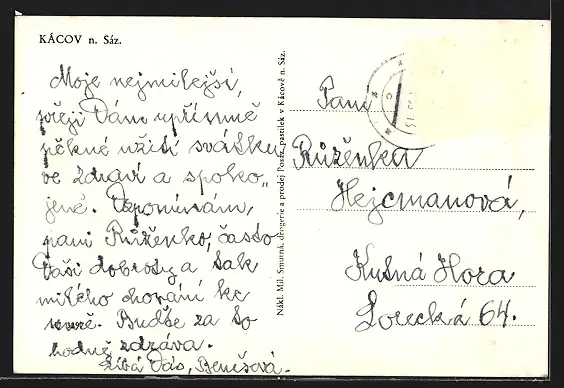 KÁCOV n. Sáz.
Moje nejmilejší,
přeji Vám upřímně
pěkné užití svátku
ve zdraví a spoko„
jeně. Vzpomínám,
paní Růženko, často
Vaší dobroty a tak
milého chování ke
mně. Buďte za to
hodně zdráva.
Líbá Vás, Benešová.
Nákl. Mil. Smutná, drogerie a prodej Posáz. pastilek v Kácově n. Sáz.
Paní
Růženka
Hejcmanová,
Kutná Hora
Lorecká 64.